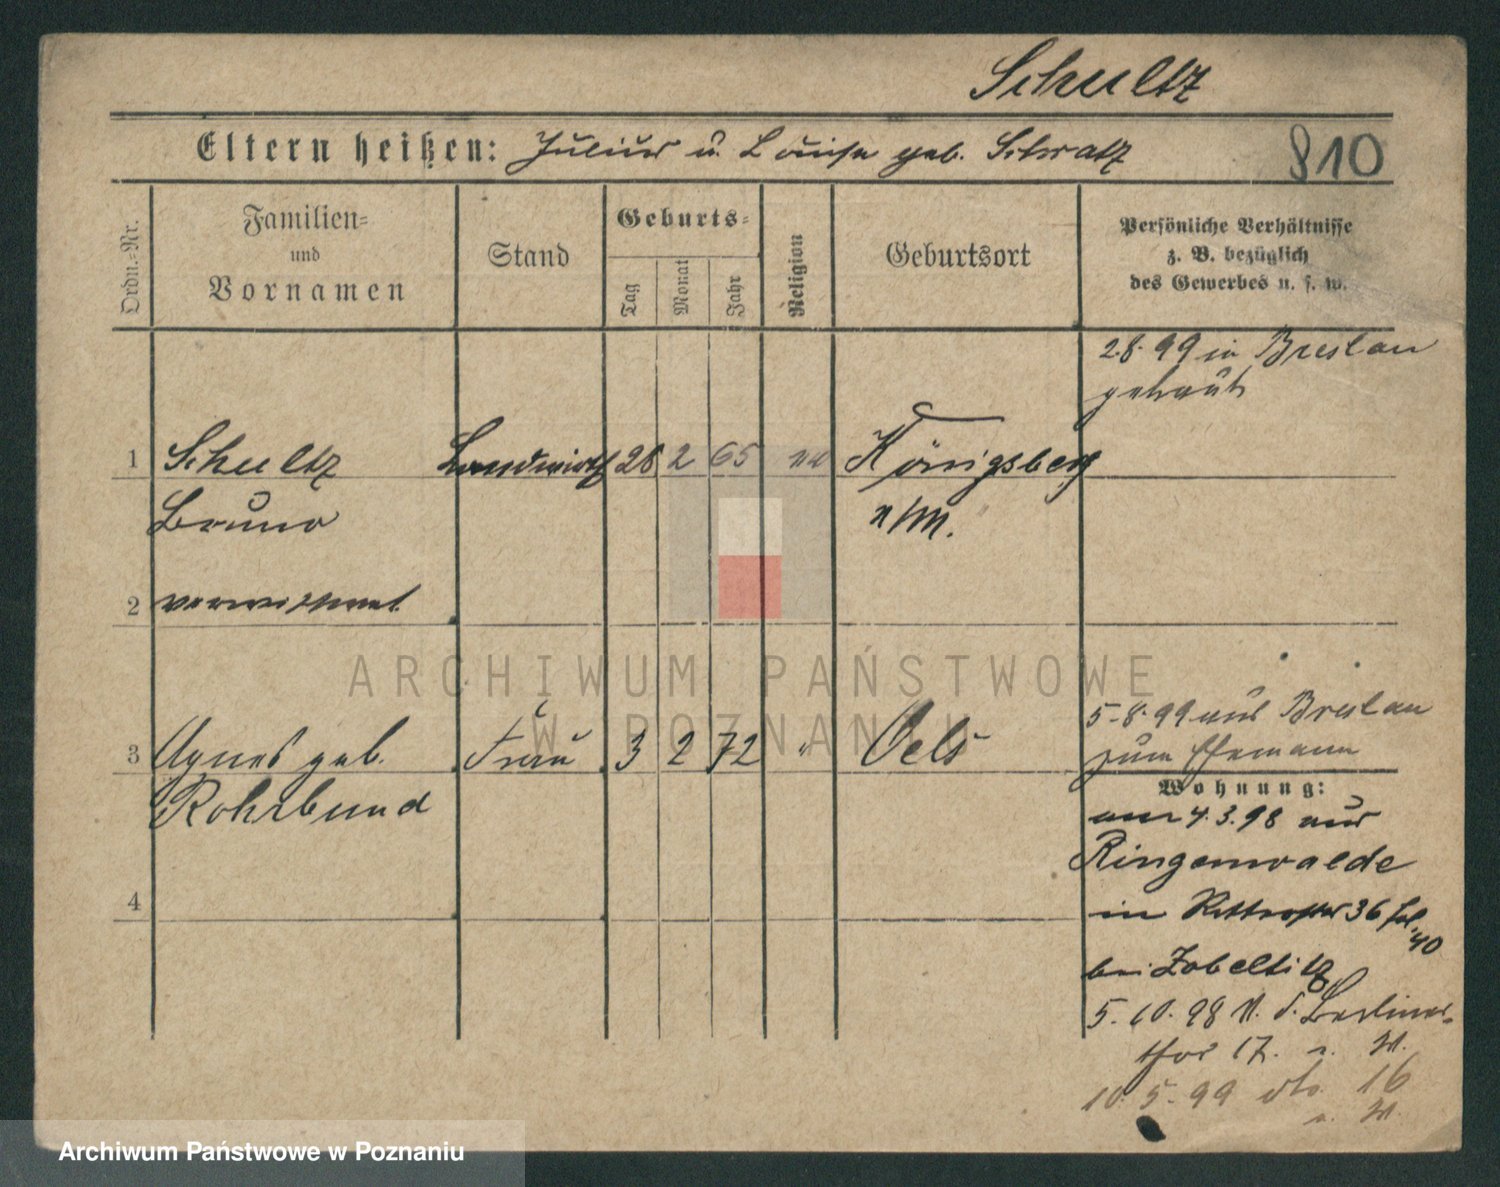 Schultz
Eltern heißen: Julius u. Louise geb. Schwatz
810
Ordn.-Nr.
Familien-
und
Vornamen
Stand
Geburts-
Tag
Monat
Jahr
Religion
Geburtsort
Persönliche Verhältnisse
z. B. bezüglich
des Gewerbes u. s. w.
2.8.99 in Breslau
getraut
1 Schultz Landwirth 26 2 65 Königsberg
Bruno n/M.
2 verwittwet
3 Agnes geb. Frau 3 2 72 " Oels
Rohrbund
5.8.99 aus Breslau
zum Ehemann
Wohnung:
am 4.3.98 aus
Ringenwalde
in 36
40
bei Zobeltitz
5.10.98 Berliner-
thor 17.
10.5.99 dto. 16
4
ARCHIWUM PAŃSTWOWE
W POZNANIU
Archiwum Państwowe w Poznaniu